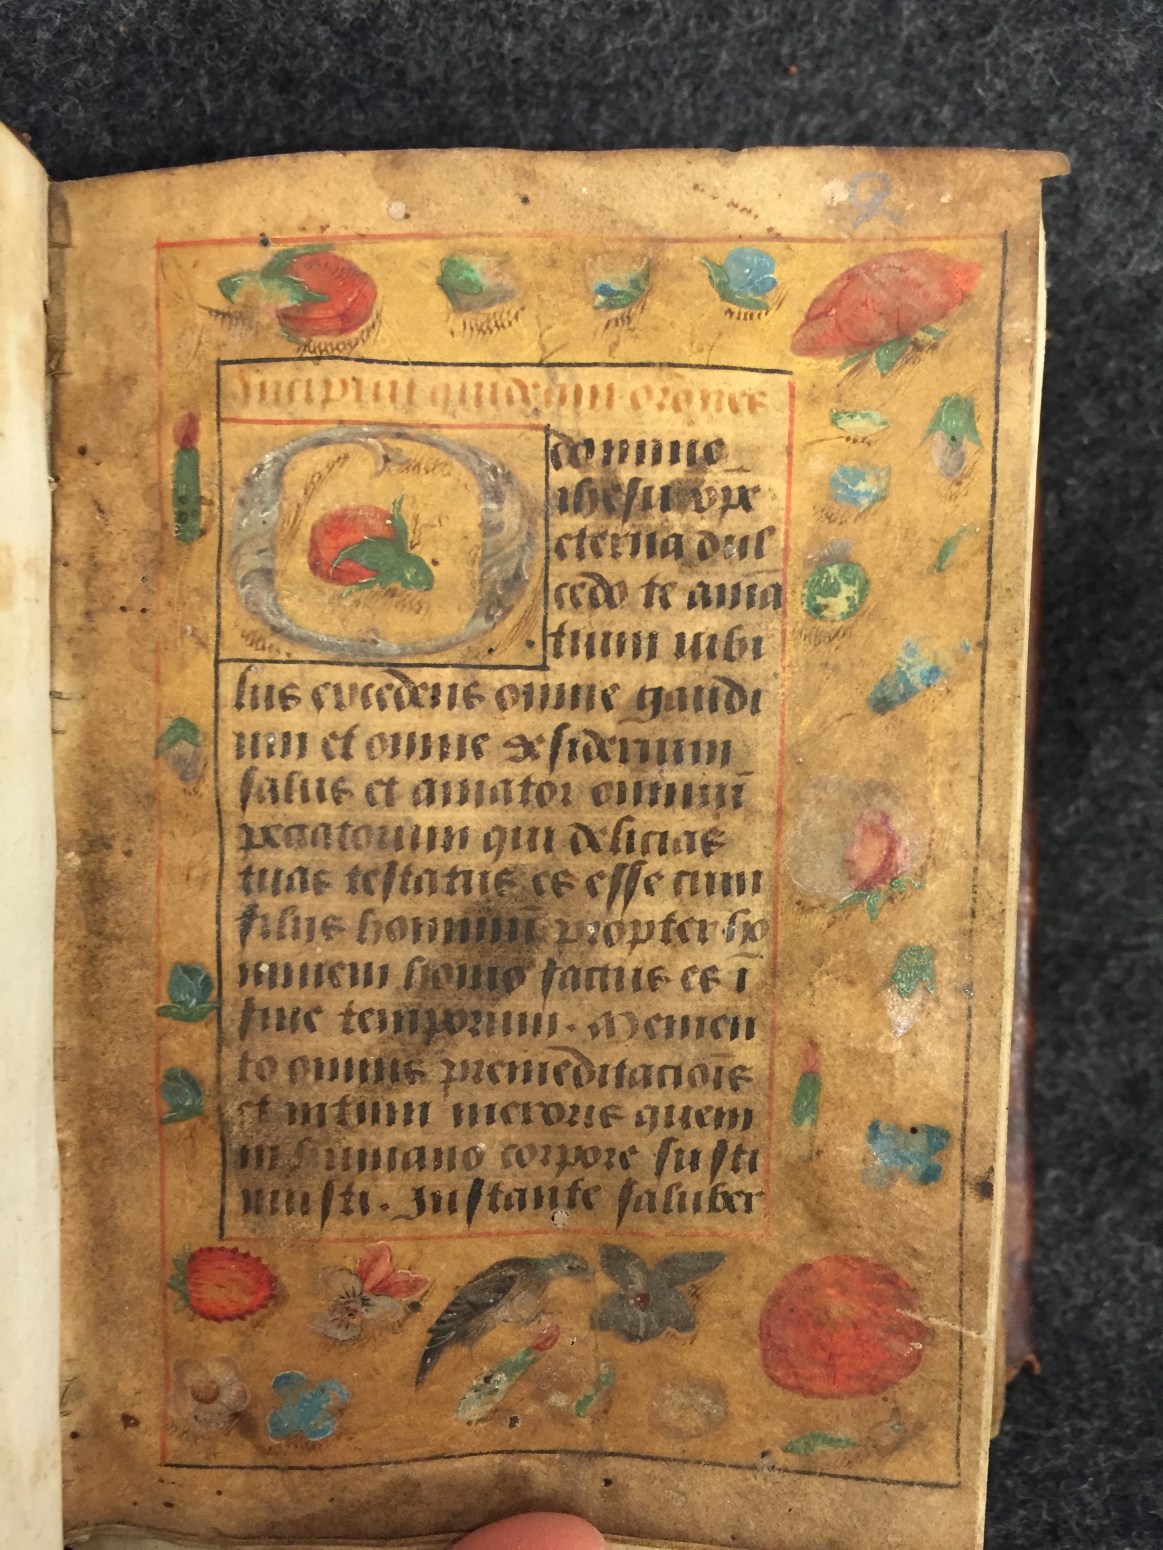 2
Incipiunt quindecim orōnes
O domine
ihesu xp̄e
eterna dul
cedo te amā
tium iubi
lus excedens omne gaudi
um et omne desiderium
salus et amator omniū
peccatorum qui delicias
tuas testatus es esse cum
filiis hominū propter ho
minem homo factus es ī
fine temporum. Memen
to omnis premeditaciōis
et intimi meroris quem
in humano corpore susti
nuisti. Instante saluber